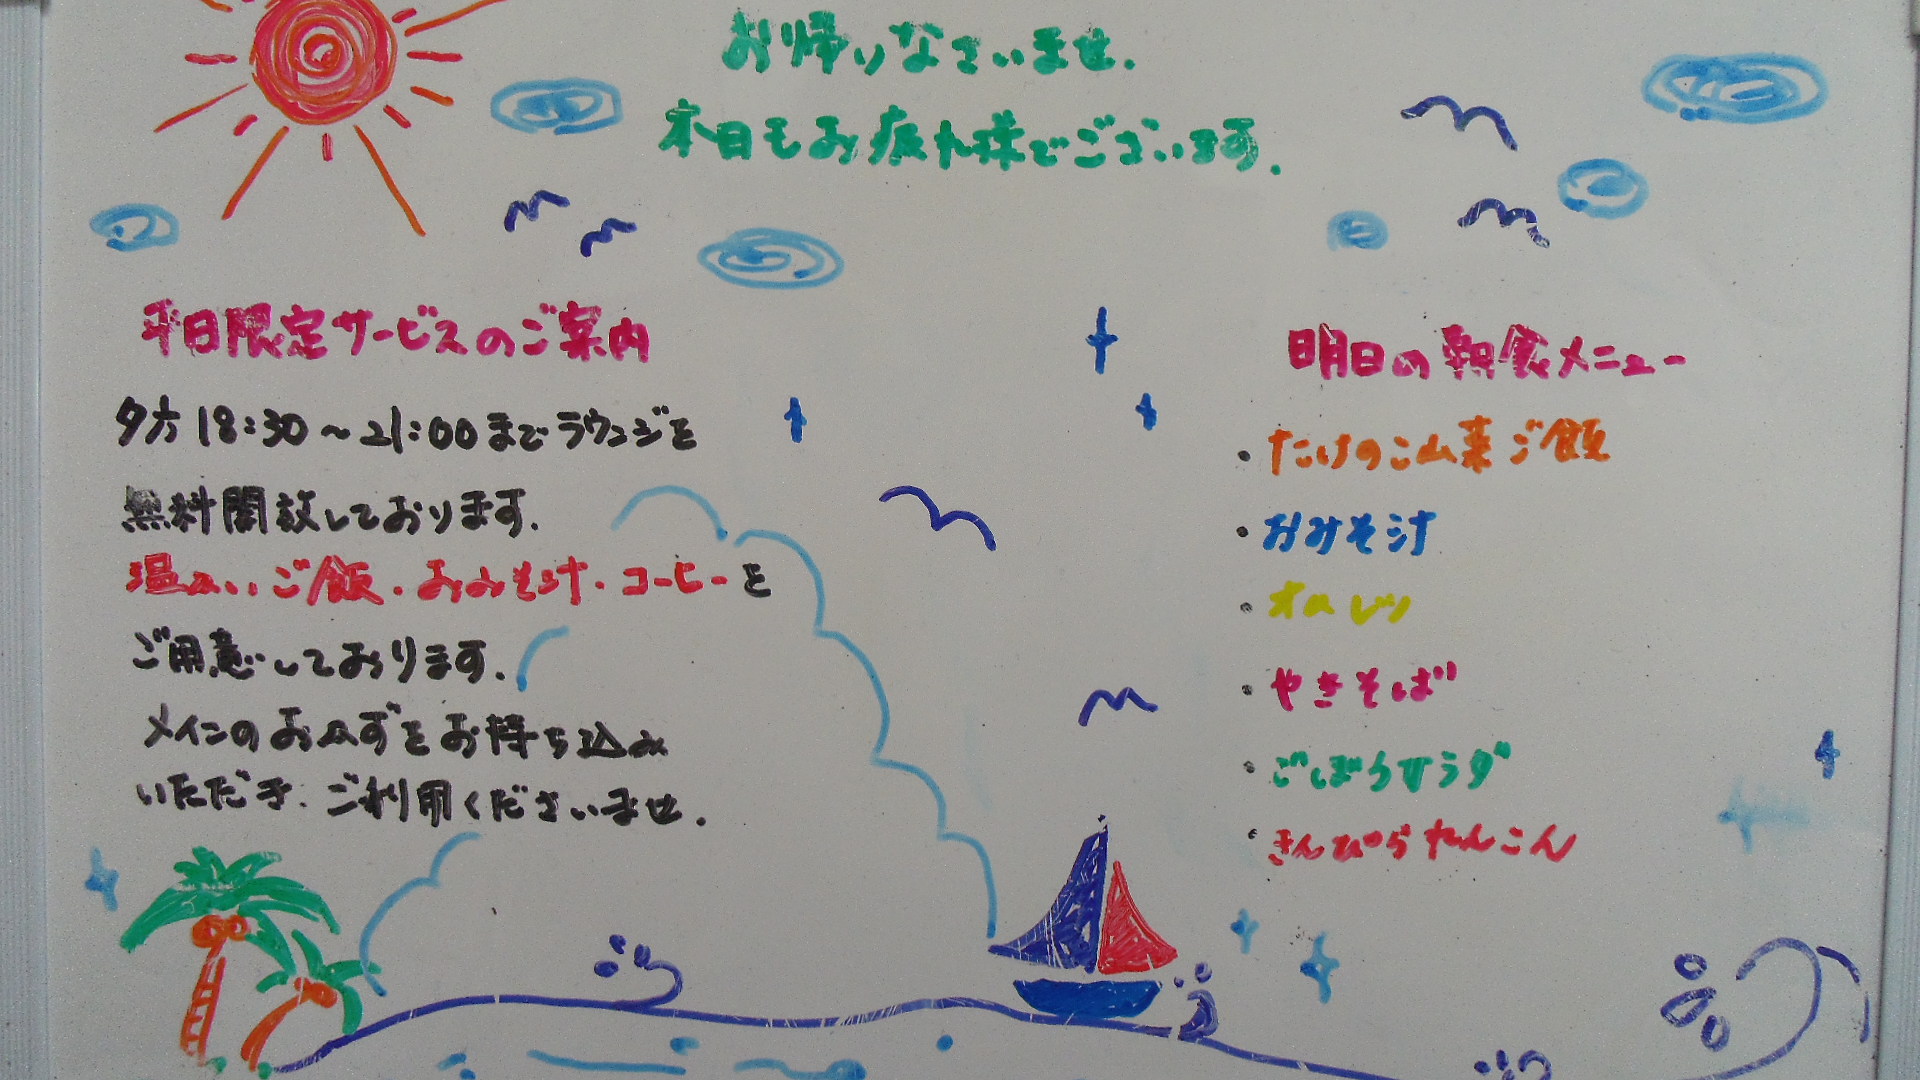 お帰りなさいませ.
本日もお疲れ様でございます.
平日限定サービスのご案内
夕方18:30～21:00までラウンジを
無料開放しております.
温かいご飯・おみそ汁・コーヒーを
ご用意しております.
メインのおかずをお持ち込み
いただき、ご利用くださいませ.
明日の朝食メニュー
・たけのこ山菜ご飯
・おみそ汁
・オムレツ
・やきそば
・ごぼうサラダ
・きんぴられんこん